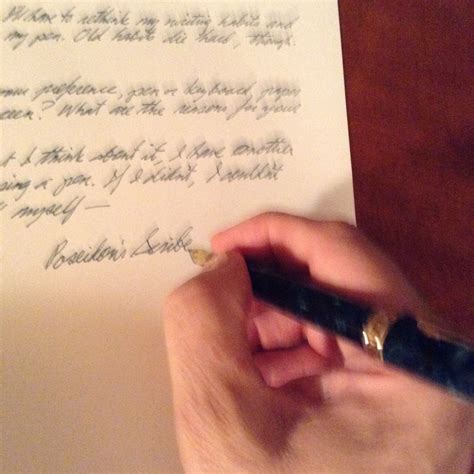 have to rethink my writing habits and
my pen. Old habits die hard, though.
preference, pen or keyboard, paper
screen? What are the reasons for your
I think about it, I have another
using a pen. If I didn't, I couldn't
myself —
Poseidon's Scribe